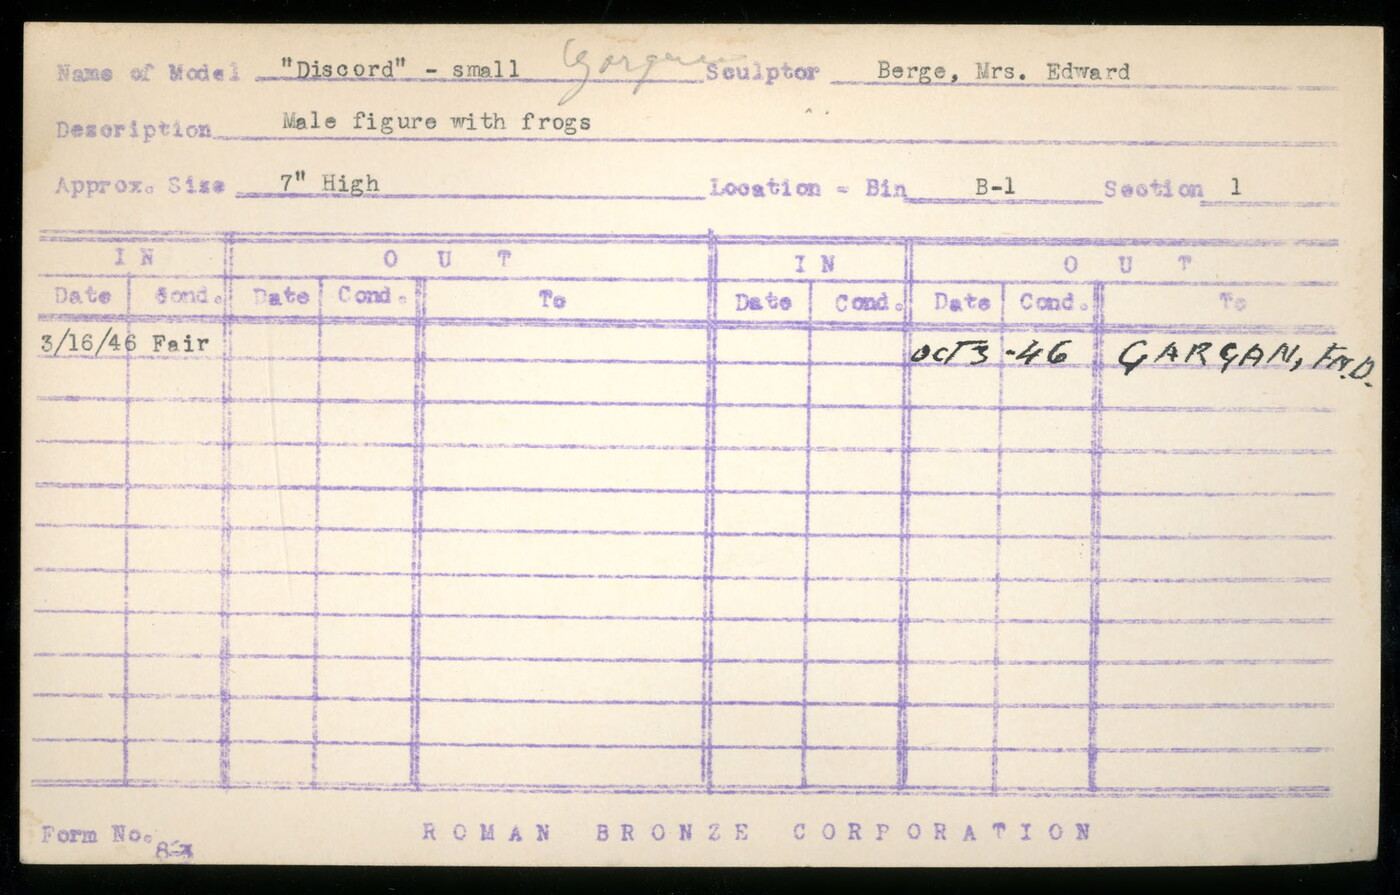 Name of Model "Discord" - small Sculptor Berge, Mrs. Edward
Description Male figure with frogs
Approx. Size 7" High Location - Bin B-1 Section 1
IN OUT IN OUT
Date Cond. Date Cond. To Date Cond. Date Cond. To
3/16/46 Fair OCT 3 -46 GARGAN,
Form No. ROMAN BRONZE CORPORATION